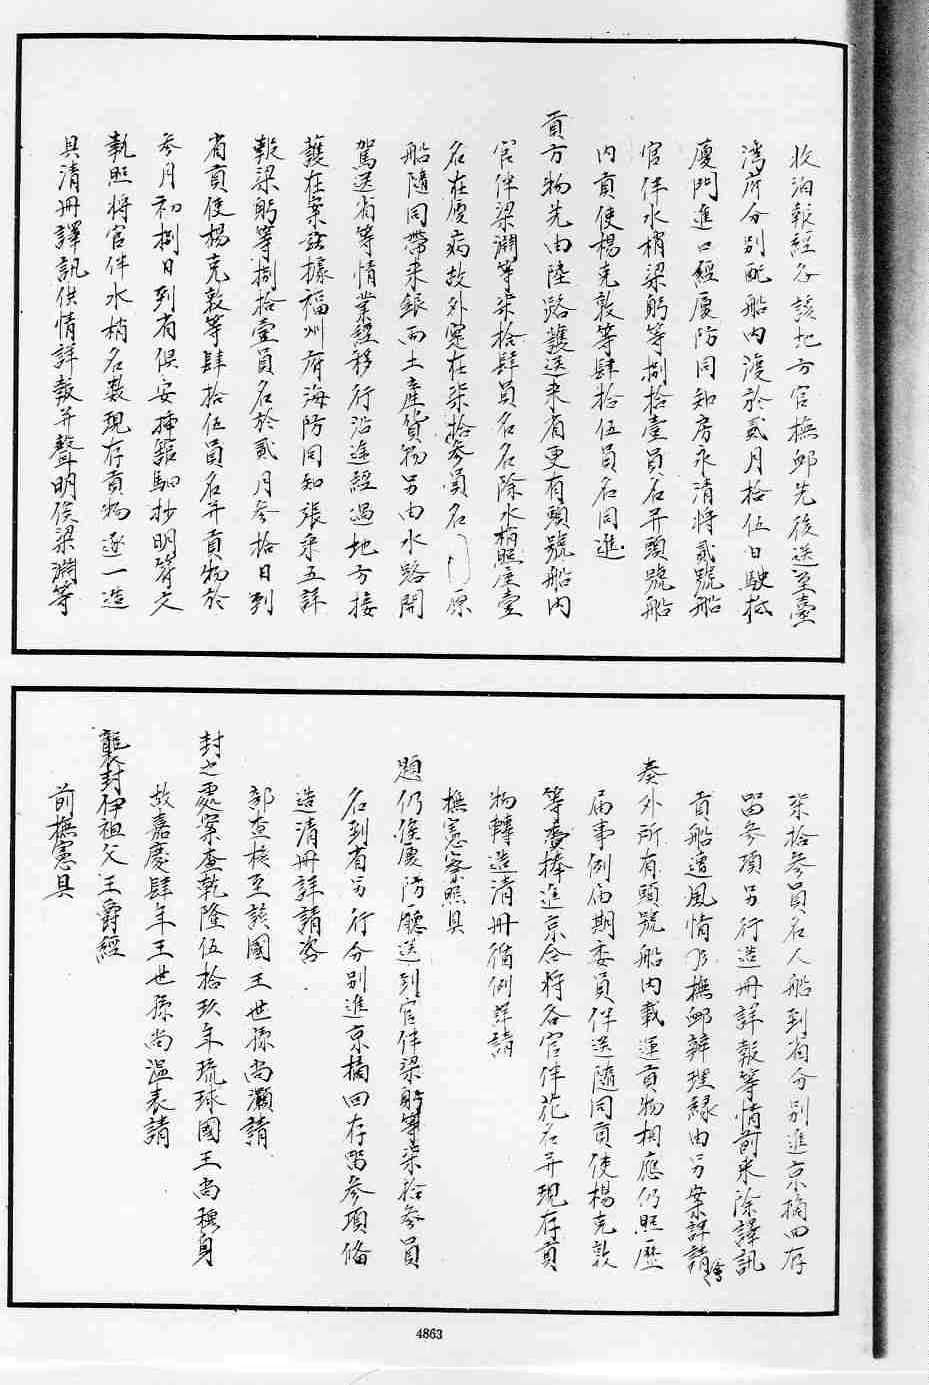 收泊報經各該地方官撫卹先後送至臺
灣府分別配船內渡於貳月拾伍日駛抵
廈門進口經廈防同知房永清將貳號船
官伴水梢梁躬等捌拾壹員名并頭號船
內貢使楊克敦等肆拾伍員名同進
貢方物先由陸路護送來省更有頭號船內
官伴梁淵等柒拾肆員名名除水梢照屋壹
名在廈病故外寔在柒拾參員名 原
船隨同帶來銀兩土產貨物另由水路開
駕送省等情業經移行沿途經過地方接
護在案茲據福州府海防同知張采五詳
報梁躬等捌拾壹員名於貳月參拾日到
省貢使楊克敦等肆拾伍員名并貢物於
參月初捌日到省俱安插館驛抄明符文
執照將官伴水梢名數現存貢物逐一造
具清冊譯訊供情詳報并聲明俟梁淵等
柒拾參員名人船到省分別進京摘回存
留參項另行造冊詳報等情前來除譯訊
貢船遭風情形撫卹辦理緣由另案詳請會
奏外所有頭號船內載運貢物相應仍照歷
屆事例屆期委員伴送隨同貢使楊克敦
等賫捧進京合將各官伴花名并現存貢
物轉造清冊循例詳請
撫憲察照具
題仍俟廈防廳送到官伴梁躬等柒拾參員
名到省另行分別進京摘回存留參項俻
造清冊詳請咨
部查核至該國王世孫尚灝請
封之處案查乾隆伍拾玖年琉球國王尚穆身
故嘉慶肆年王世孫尚溫表請
襲封伊祖父王爵經
前撫憲具
4863